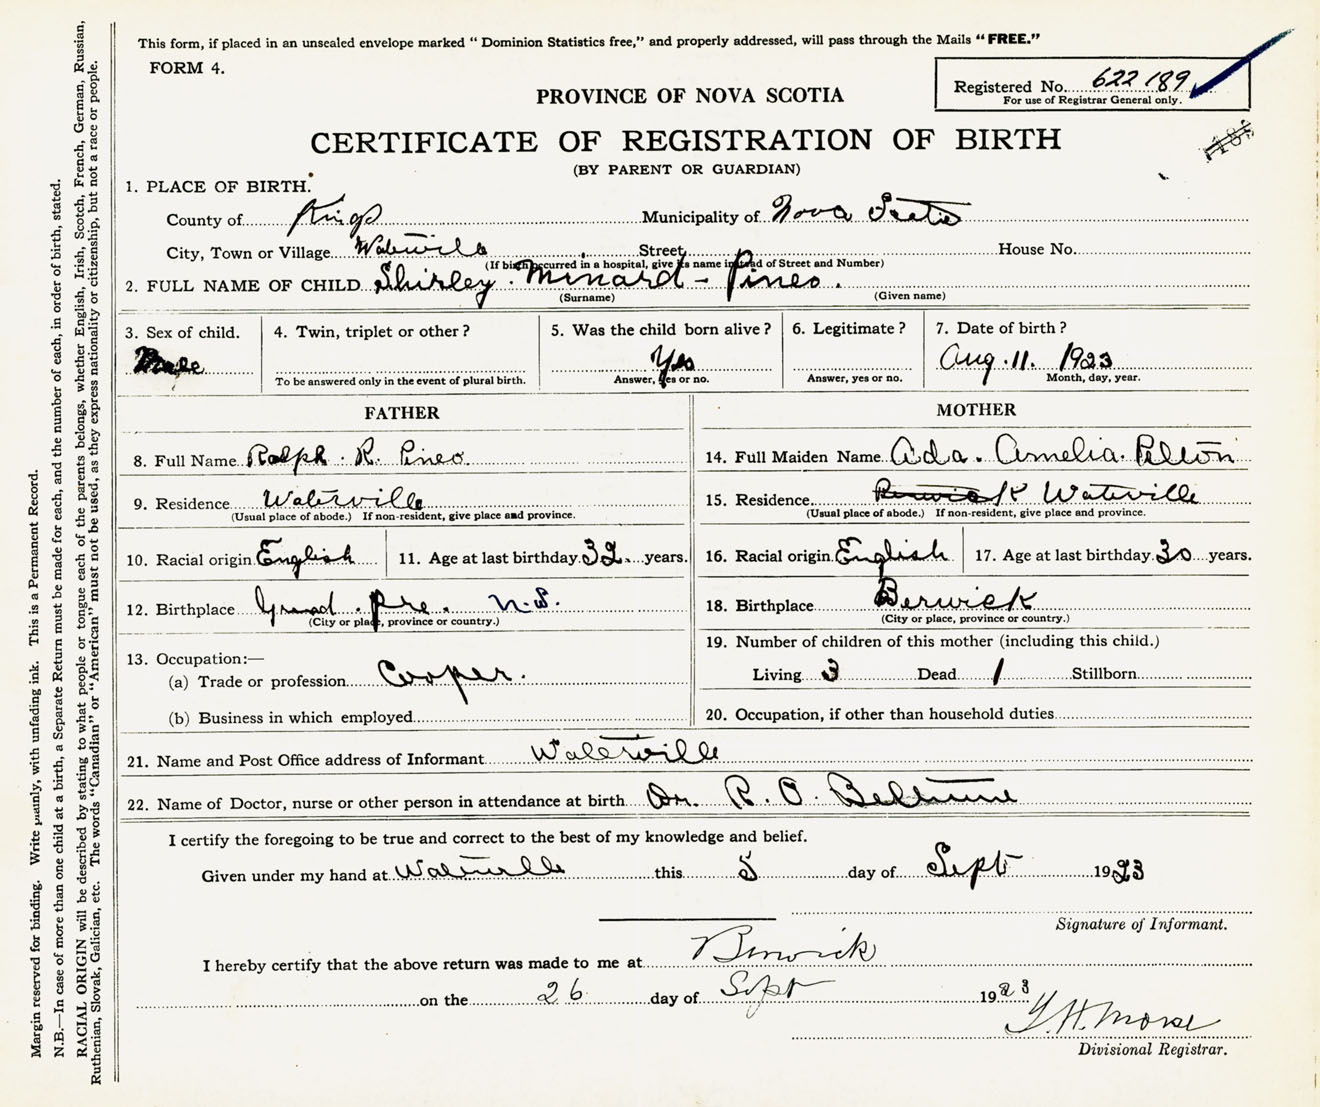 This form, if placed in an unsealed envelope marked “ Dominion Statistics free,” and properly addressed, will pass through the Mails “ FREE.”
FORM 4.
Registered No. 622189
For use of Registrar General only.
PROVINCE OF NOVA SCOTIA
CERTIFICATE OF REGISTRATION OF BIRTH
(BY PARENT OR GUARDIAN)
1. PLACE OF BIRTH.
County of Kings Municipality of Nova Scotia
City, Town or Village Waterville Street House No.
(If birth occurred in a hospital, give its name instead of Street and Number)
2. FULL NAME OF CHILD Shirley Minard - Pineo.
(Surname) (Given name)
3. Sex of child. Male
4. Twin, triplet or other ?
To be answered only in the event of plural birth.
5. Was the child born alive ? Yes
Answer, yes or no.
6. Legitimate ?
Answer, yes or no.
7. Date of birth ?
Aug. 11. 1923
Month, day, year.
FATHER
8. Full Name Ralph. R. Pineo.
9. Residence Waterville
(Usual place of abode.) If non-resident, give place and province.
10. Racial origin English 11. Age at last birthday 32 years.
12. Birthplace Grand. Pre. N.S.
(City or place, province or country.)
13. Occupation:—
(a) Trade or profession Cooper.
(b) Business in which employed
MOTHER
14. Full Maiden Name Ada. Amelia. Pelton
15. Residence Berwick Waterville
(Usual place of abode.) If non-resident, give place and province.
16. Racial origin English 17. Age at last birthday 30 years.
18. Birthplace Berwick
(City or place, province or country.)
19. Number of children of this mother (including this child.)
Living 3 Dead 1 Stillborn
20. Occupation, if other than household duties
21. Name and Post Office address of Informant Waterville
22. Name of Doctor, nurse or other person in attendance at birth Dr. R. O.
I certify the foregoing to be true and correct to the best of my knowledge and belief.
Given under my hand at Waterville this 5 day of Sept 1923
Signature of Informant.
I hereby certify that the above return was made to me at Berwick
on the 26 day of Sept 1923
H. Morse
Divisional Registrar.
Margin reserved for binding. Write plainly, with unfading ink. This is a Permanent Record.
N.B.—In case of more than one child at a birth, a Separate Return must be made for each, and the number of each, in order of birth, stated.
RACIAL ORIGIN will be described by stating to what people or tongue each of the parents belongs, whether English, Irish, Scotch, French, German, Russian,
Ruthenian, Slovak, Galician, etc. The words “Canadian” or “American” must not be used, as they express nationality or citizenship, but not a race or people.